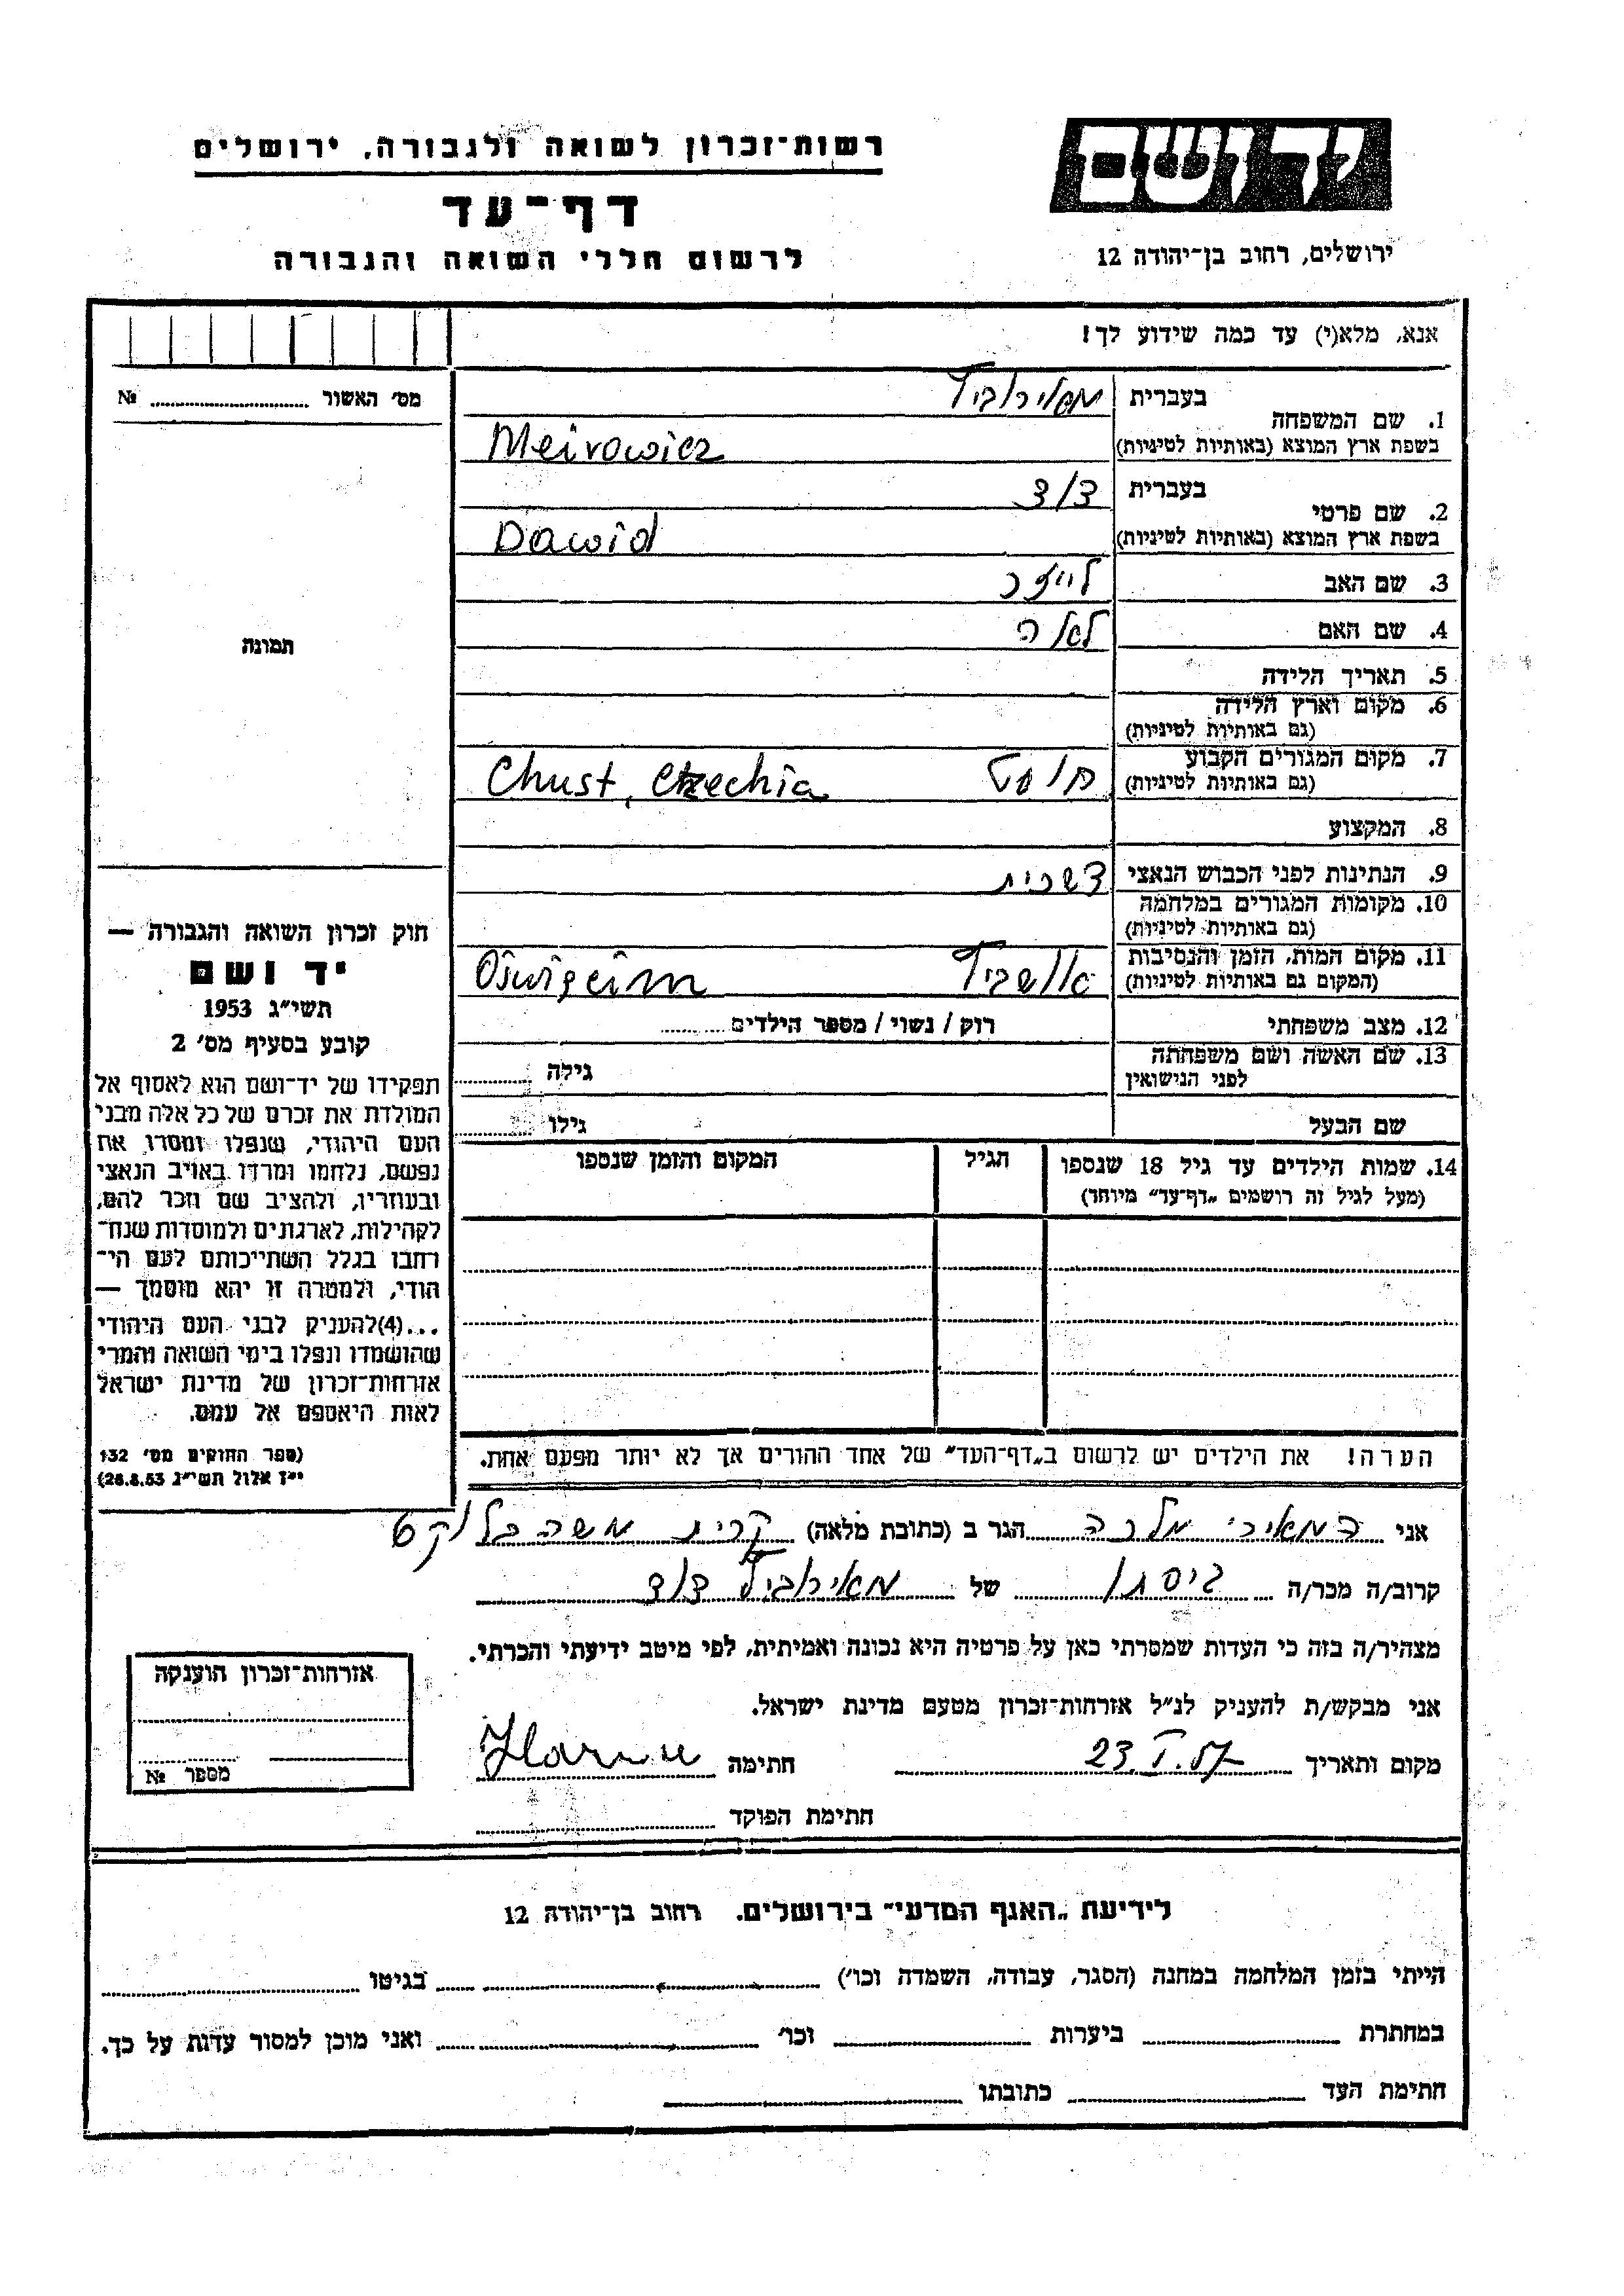 יד ושם
רשות־זכרון לשואה ולגבורה, ירושלים
דף־עד
לרשום חללי השואה והגבורה
ירושלים, רחוב בן־יהודה 12
אנא, מלא(י) עד כמה שידוע לך!
מס׳ האשור ........ №
1. שם המשפחה
בעברית מאירוביץ
בשפת ארץ המוצא (באותיות לטיניות) Meirowicz
2. שם פרטי
בעברית דוד
בשפת ארץ המוצא (באותיות לטיניות) Dawid
3. שם האב לייזר
4. שם האם לאה
5. תאריך הלידה
6. מקום וארץ הלידה
(גם באותיות לטיניות)
7. מקום המגורים הקבוע חוסט Chust, Czechia
(גם באותיות לטיניות)
8. המקצוע
9. הנתינות לפני הכבוש הנאצי
10. מקומות המגורים במלחמה
(גם באותיות לטיניות)
11. מקום המות, הזמן והנסיבות אושביץ
(המקום גם באותיות לטיניות)
12. מצב משפחתי רוק / נשוי / מספר הילדים ......
13. שם האשה ושם משפחתה גילה ........
לפני הנישואין
שם הבעל גילו ........
14. שמות הילדים עד גיל 18 שנספו הגיל המקום והזמן שנספו
(מעל לגיל זה רושמים „דף־עד״ מיוחד)
הערה! את הילדים יש לרשום ב„דף־העד״ של אחד ההורים אך לא יותר מפעם אחת.
תמונה
חוק זכרון השואה והגבורה —
יד ושם
תשי״ג 1953
קובע בסעיף מס׳ 2
תפקידו של יד־ושם הוא לאסוף אל
המולדת את זכרם של כל אלה מבני
העם היהודי, שנפלו ומסרו את
נפשם, נלחמו ומרדו באויב הנאצי
ובעוזריו, ולהציב שם וזכר להם,
לקהילות, לארגונים ולמוסדות שנח־
רבו בגלל השתייכותם לעם הי־
הודי, ולמטרה זו יהא מוסמך —
...(4)להעניק לבני העם היהודי
שהושמדו ונפלו בימי השואה והמרי
אזרחות־זכרון של מדינת ישראל
לאות היאספם אל עמם.
(ספר החוקים מס׳ 132
י״ז אלול תשי״ג 28.8.53)
אני המאירי מלכה הגר ב (כתובת מלאה) קרית משה בלוק 9
קרוב/ה מכר/ה גיסתו של מאירוביץ דוד
מצהיר/ה בזה כי העדות שמסרתי כאן על פרטיה היא נכונה ואמיתית, לפי מיטב ידיעתי והכרתי.
אני מבקש/ת להעניק לנ״ל אזרחות־זכרון מטעם מדינת ישראל.
מקום ותאריך 23.I.57 חתימה
חתימת הפוקד
אזרחות־זכרון הוענקה
מספר №
לידיעת „האגף המדעי״ בירושלים. רחוב בן־יהודה 12
הייתי בזמן המלחמה במחנה (הסגר, עבודה, השמדה וכו׳) ........ בגיטו ........
במחתרת ........ ביערות ........ וכו׳ ........ ואני מוכן למסור עדות על כך.
חתימת העד ........ כתובתו ........